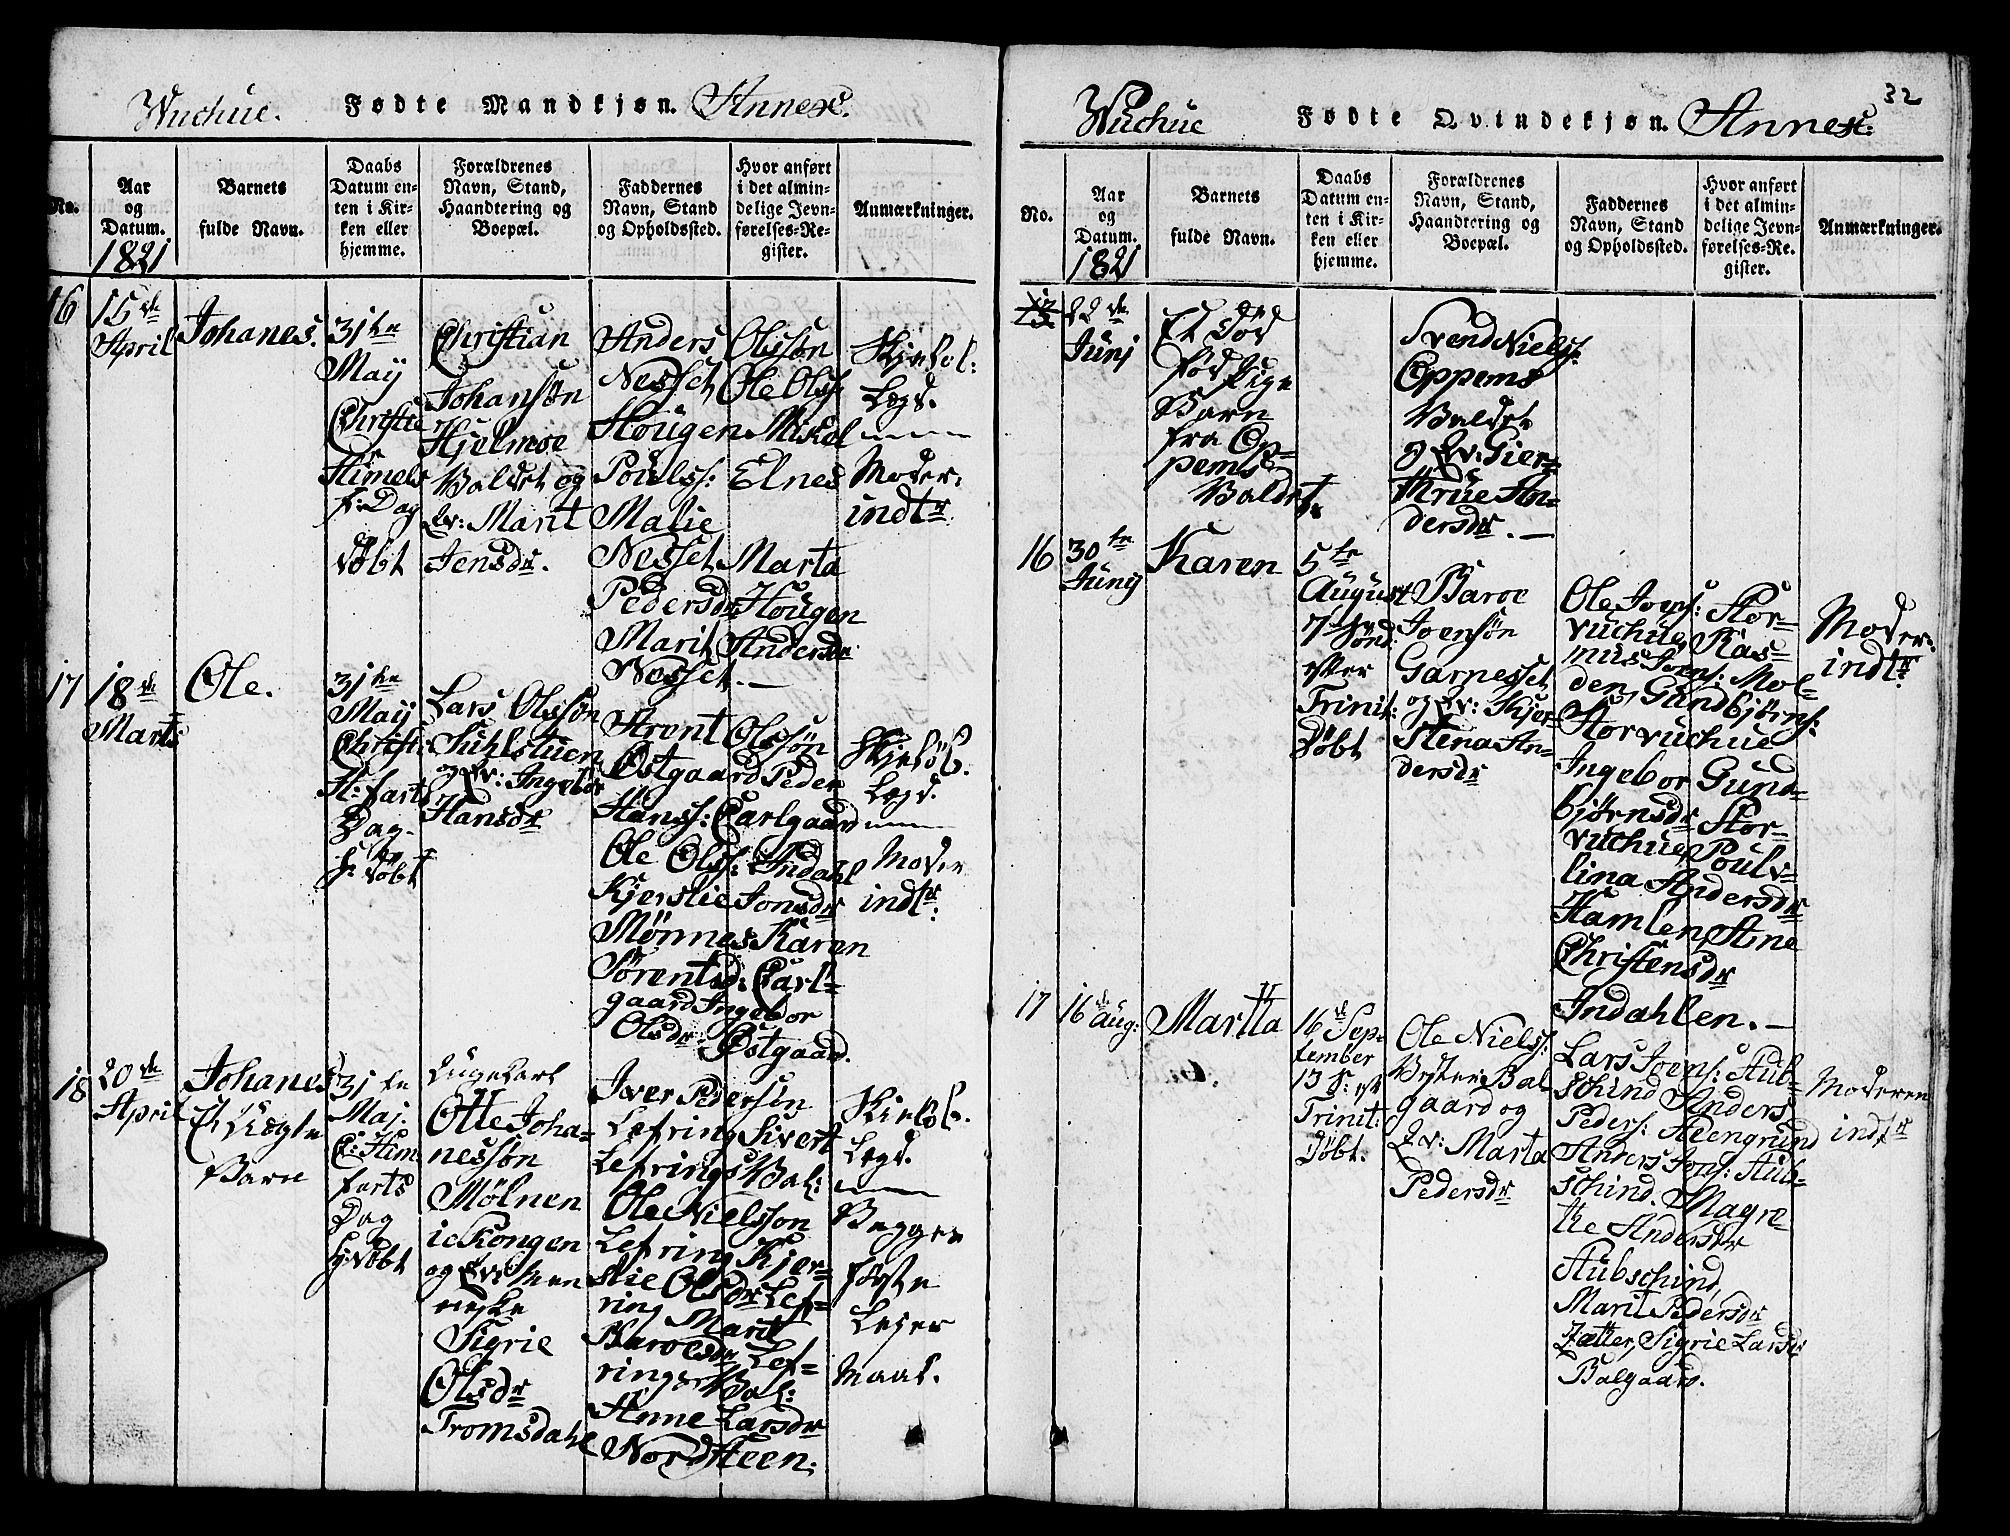 Wuchue. Fødte Mandkjøn. Annex.
No.
Aar og Datum. 1821
Barnets fulde Navn.
Daabs Datum enten i Kirken eller hjemme.
Forældrenes Navn, Stand, Haandtering og Boepæl.
Faddernes Navn, Stand og Opholdssted.
Hvor anført i det almindelige Jevnførelses-Register.
Anmærkninger.
16
15de
April
Johanes.
31te
May
Christie
Himels
f: Dag
døbt
Christian
Johansøn
Hjelmoe
Valdet og
Qv: Marit
Jensdr.
Anders Olssøn
Nesset Ole Olss:
Hougen Mikel
Poulss: Elnes
Malie
Nesset Marta
Pedersdr Hougen
Marit Andersdr
Nesset.
Skjefol:
Legd.
Moder:
indtr
17
18de
Marts
Ole.
31te
May
Christi
H: farts
Dag
døbt
Lars Olssøn
Suhlstuen
og Qv: Ingebor
Hansdr
Arent Olssøn
Østgaard Peder
Hanss: Carlgaard
Ole Olss: Indahl
Kjerstie Jonsdr
Mønnes Karen
Sørentsd: Carl=
gaard Ingebor
Olsdr Østgaard.
Skjeføl.
Legd.
Moder
indtr:
18
20de
April
Johanes
Et Uægte
Barn
31te
Maj.
C: Hem
farts
Dag
H: døbt
Ungekarl
Otte Joha=
nessøn
Mølnen
ie Kongen
og Qv: Men
neske
Sigrie
Olsdr
Tromsdahl
Iver Pedersøn
Lefring Sivert
Lefrings Val:
Ole Nielsson
Lefring Kjer=
stie Olsdr Lef=
ring Marit
Baroesdr Lef=
rings Val:
Anne Larsdr
Nord Steen.
Skjeføl.
Legd.
Begges
første
Lejer
Maal.
32
Wuchue Fødte Qvindekjøn. Annex:
No.
Aar og Datum. 1821
Barnets fulde Navn.
Daabs Datum enten i Kirken eller hjemme.
Forældrenes Navn, Stand, Haandtering og Boepæl.
Faddernes Navn, Stand og Opholdssted.
Hvor anført i det almindelige Jevnførelses-Register.
Anmærkninger.
22de
Junj
Et død
fød Pige
Barn
fra Op=
pems
Valdet
Svend Nielss:
Oppems
Valdet
og Qv: Gier=
thrue An=
dersdr.
16
30te
Junij
Karen
5te
August
7de Sønd
efter
Trinit:
døbt
Baroe
Joensøn
Garnesset
og Qv: Kjer
stena An=
dersdr
Ole Joens: Stor=
vuchue Ras=
mus Joens: Mol=
den, Gundbjørns:
Storvuchue
Ingebor Gund=
bjørnsdr Stor=
vuchue, Pouli=
lina Andersdr
Hamlen, Stine
Christensdr
Indahlen.
Moder:
indtr
17
16de
Aug:
Martta
16de Sep=
tember
13 S: eft
Trinit:
Døbt.
Ole Nielss:
Bal
gaard og
Qv: Marta
Pedersdr
Lars Joens: Stub=
schind Anders
Peders: Steengrund
Anders Jons: Stub=
schind. Magre=
the Andersdr
Stubschind,
Marit Pedersdr
Zætter, Sigrie Larsdr
Balgaard.
Moderen
indtr